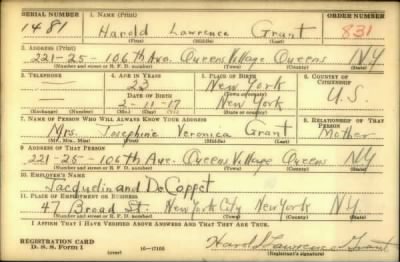 SERIAL NUMBER 1. NAME (Print) ORDER NUMBER
1481 Harold Lawrence Grant 831
(First) (Middle) (Last)
2. ADDRESS (Print)
221-25-106th Ave. Queens Village Queens NY
(Number and street or R. F. D. number) (Town) (County) (State)
3. TELEPHONE 4. AGE IN YEARS 5. PLACE OF BIRTH 6. COUNTRY OF CITIZENSHIP
— 23 New York
DATE OF BIRTH (Town or county)
— 2-11-17 New York U.S.
(Exchange) (Number) (Mo.) (Day) (Yr.) (State or country)
7. NAME OF PERSON WHO WILL ALWAYS KNOW YOUR ADDRESS 8. RELATIONSHIP OF THAT PERSON
Mrs. Josephine Veronica Grant Mother
(Mr., Mrs., Miss) (First) (Middle) (Last)
9. ADDRESS OF THAT PERSON
221-25-106th Ave. Queens Village Queens NY
(Number and street or R. F. D. number) (Town) (County) (State)
10. EMPLOYER'S NAME
Jacquelin and De Coppet
11. PLACE OF EMPLOYMENT OR BUSINESS
47 Broad St. New York City New York NY
(Number and street or R. F. D. number) (Town) (County) (State)
I AFFIRM THAT I HAVE VERIFIED ABOVE ANSWERS AND THAT THEY ARE TRUE.
REGISTRATION CARD
D. S. S. Form 1 (over) 16-17105 Harold Lawrence Grant
(Registrant's signature)